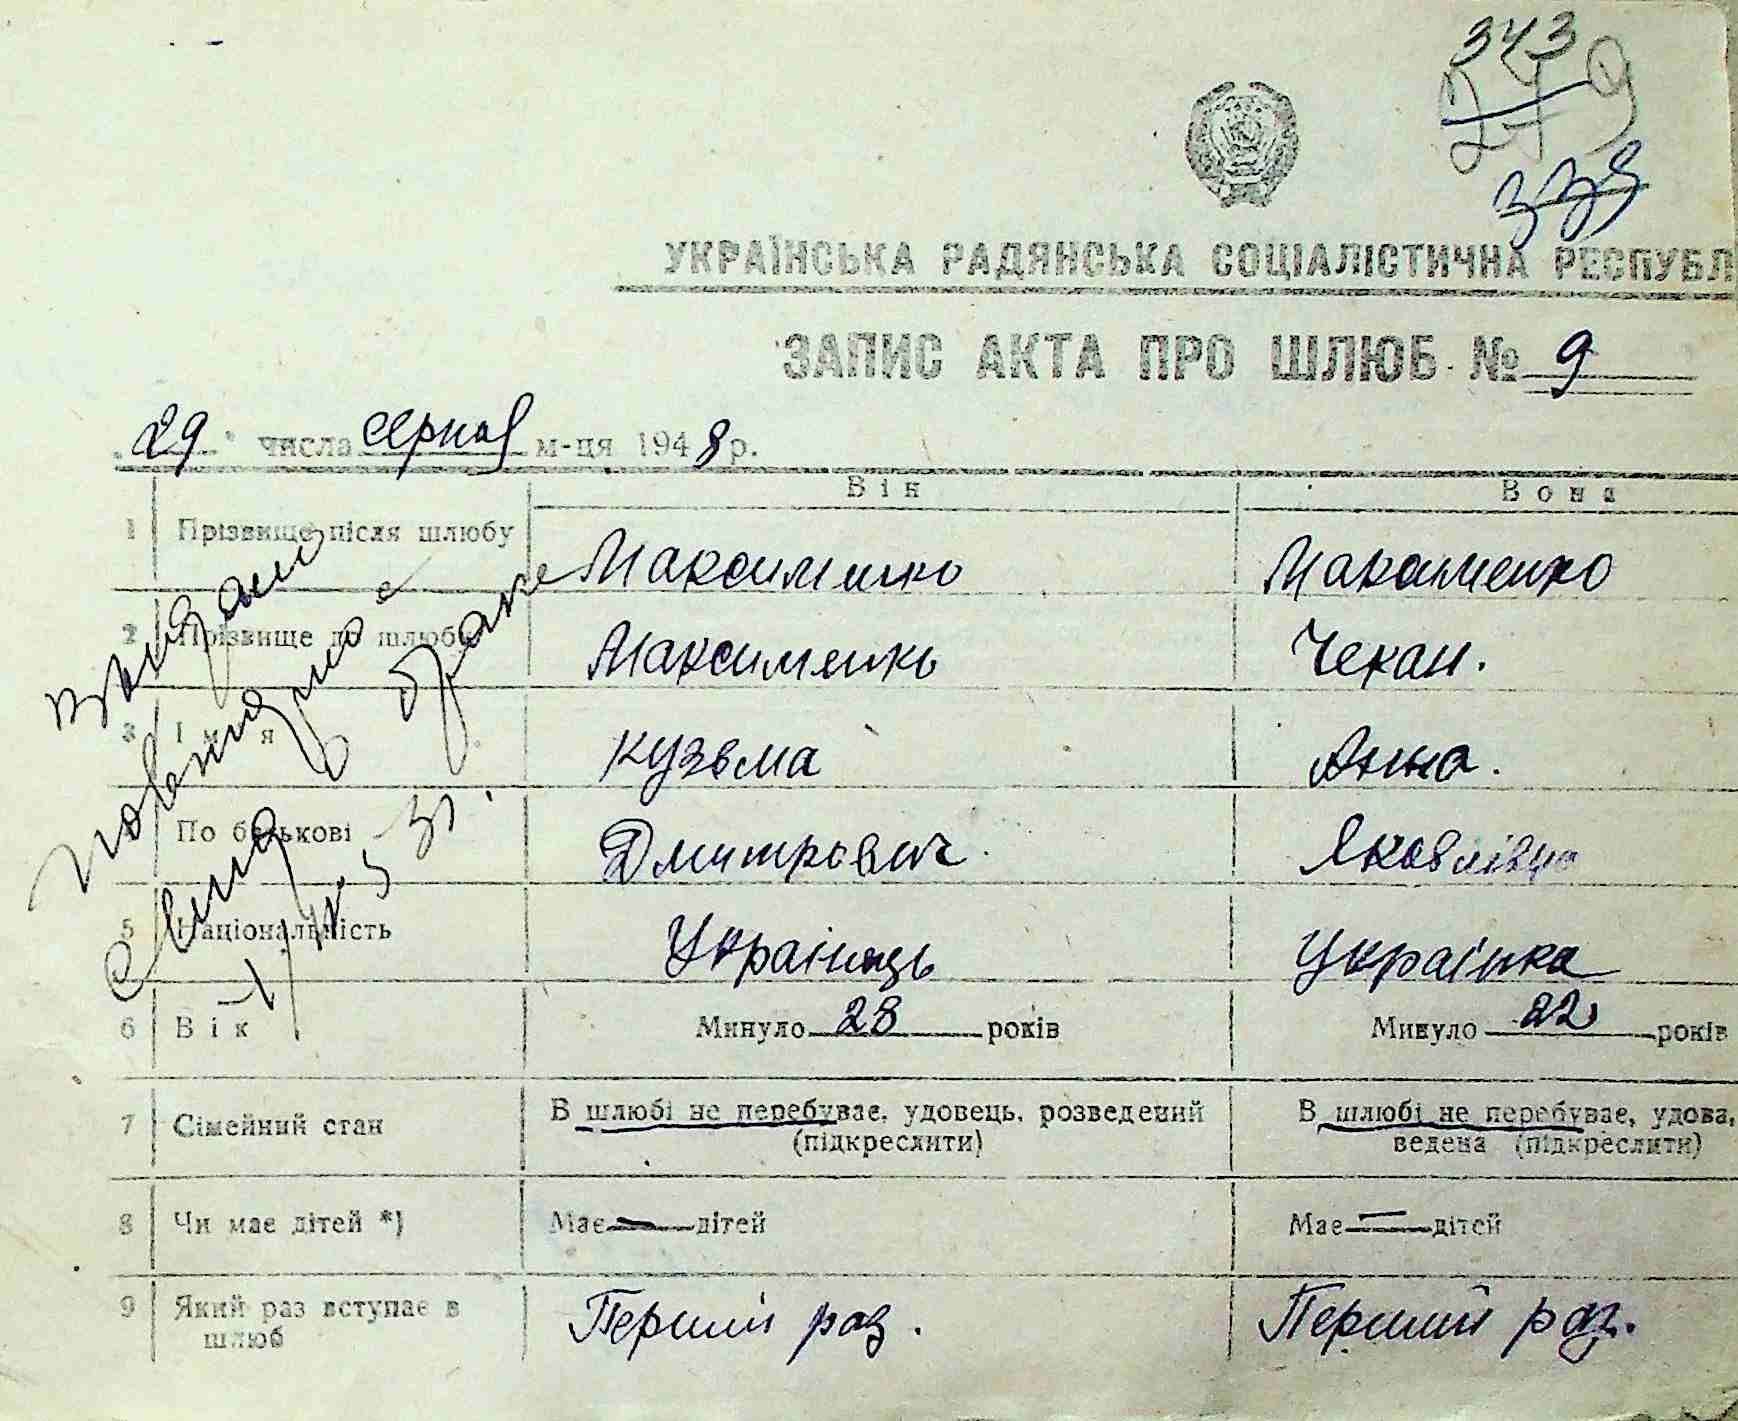 343
279
339
УКРАЇНСЬКА РАДЯНСЬКА СОЦІАЛІСТИЧНА РЕСПУБЛ
ЗАПИС АКТА ПРО ШЛЮБ № 9
29 числа серпня м-ця 1948 р.
Він Вона
1 Прізвище після шлюбу Максименко Максименко
2 Прізвище до шлюбу Максименко Чекан.
3 Ім'я Кузьма Анна.
По батькові Дмитрович Яковлівна
5 Національність Українець Українка
6 Вік Минуло 28 років Минуло 22 років
7 Сімейний стан В шлюбі не перебуває, удовець, розведений В шлюбі не перебуває, удова,
(підкреслити) ведена (підкреслити)
8 Чи має дітей *) Має — дітей Має — дітей
9 Який раз вступає в Перший раз. Перший раз.
шлюб
выдано
повторное
о браке